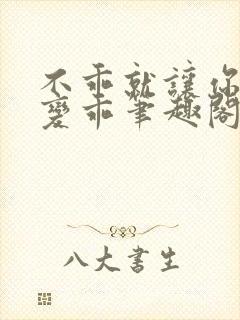 不乖就讓你
變乖筆趣閣
八大書生